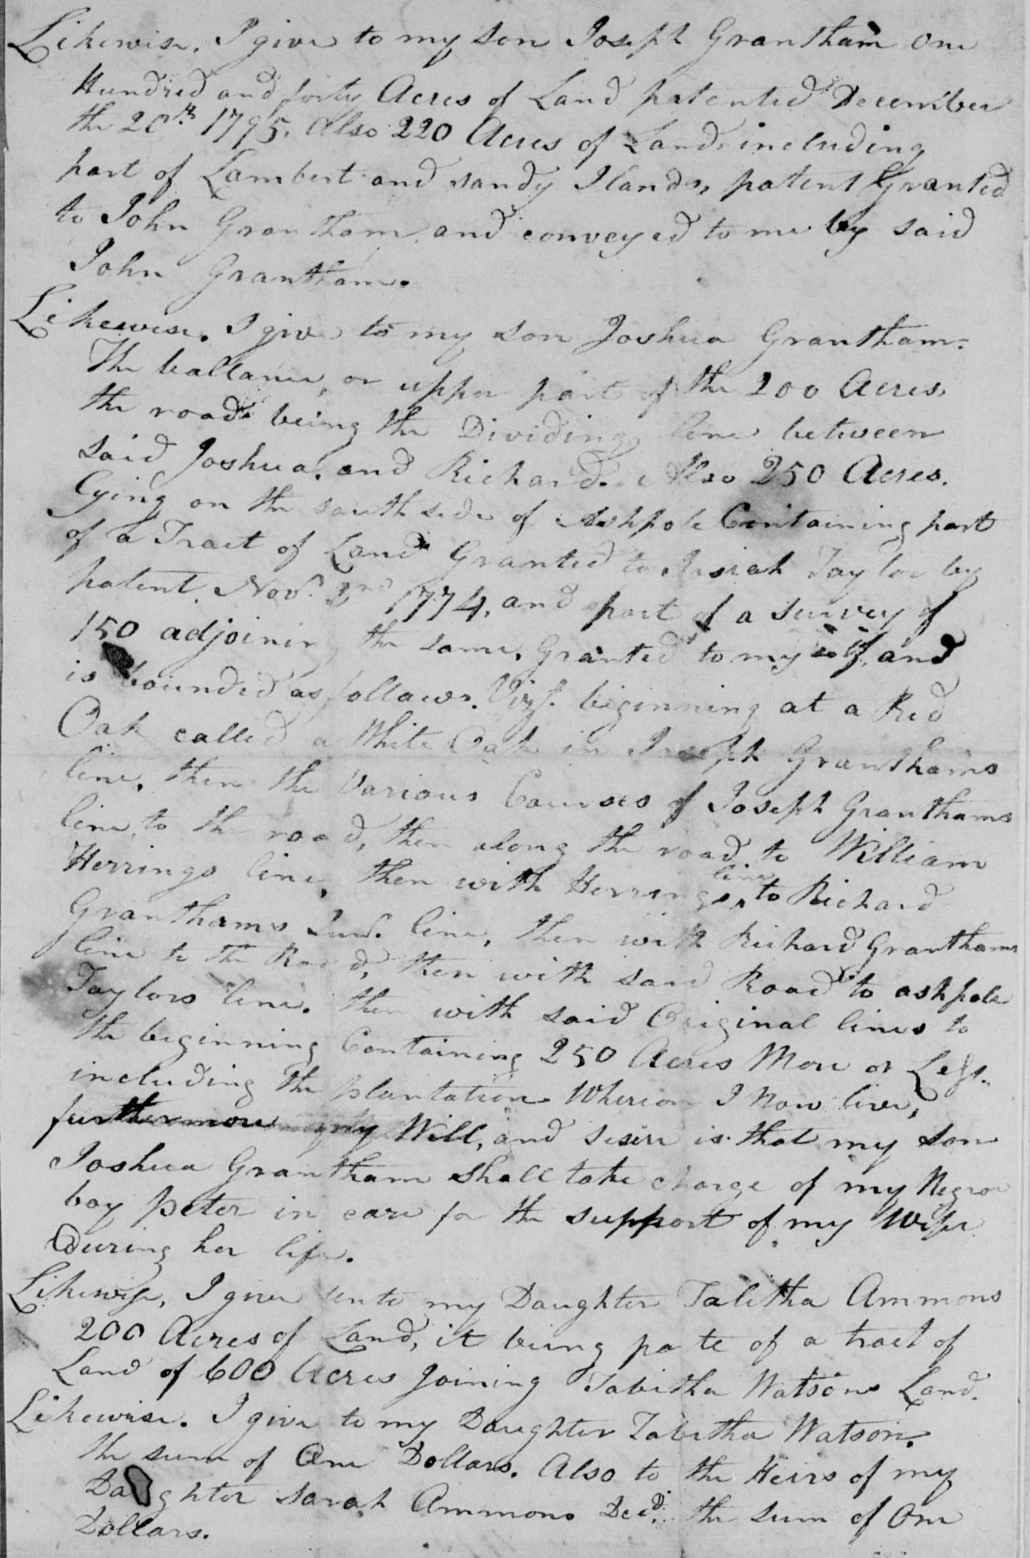 Likewise. I give to my son Joseph Grantham One
Hundred and forty Acres of Land patented December
the 20th 1795. Also 220 Acres of Land including
part of Lambert and sandy Ilands, patent Granted
to John Grantham and conveyed to me by said
John Grantham.
Likewise. I give to my son Joshua Grantham.
The ballance, or upper part of the 200 Acres,
the road being the Dividing line between
said Joshua. and Richard. Also 250 Acres.
Lying on the south side of Ashpole Containing part
of a Tract of Land Granted to Josiah Taylor by
patent. Novr. 2nd 1774, and part of a survey of
150 adjoining the same. Granted to myself, and
is bounded as follows. Viz. beginning at a Red
Oak called a White Oak in Joseph Granthams
line, then the Various Courses of Joseph Granthams
line, to the road, then along the road to William
Herrings line, then with Herrings line to Richard
Granthams Junr. line, then with Richard Granthams
line to the Road, then with said Road to ashpole
Taylors line. then with said Original lines to
the beginning Containing 250 Acres More or Less.
including the plantation Wherion I Now live,
furthermore my Will, and desire is that my son
Joshua Grantham shall take charge of my Negroe
boy peter in care for the support of my Wife
during her life.
Likewise, I give unto my Daughter Tabitha Ammons
200 Acres of Land, it being parte of a tract of
Land of 600 Acres Joining Tabitha Watsons Land.
Likewise. I give to my Daughter Tabitha Watson.
the sum of One Dollars. Also to the Heirs of my
Daughter Sarah Ammons Decd. the sum of One
Dollars.